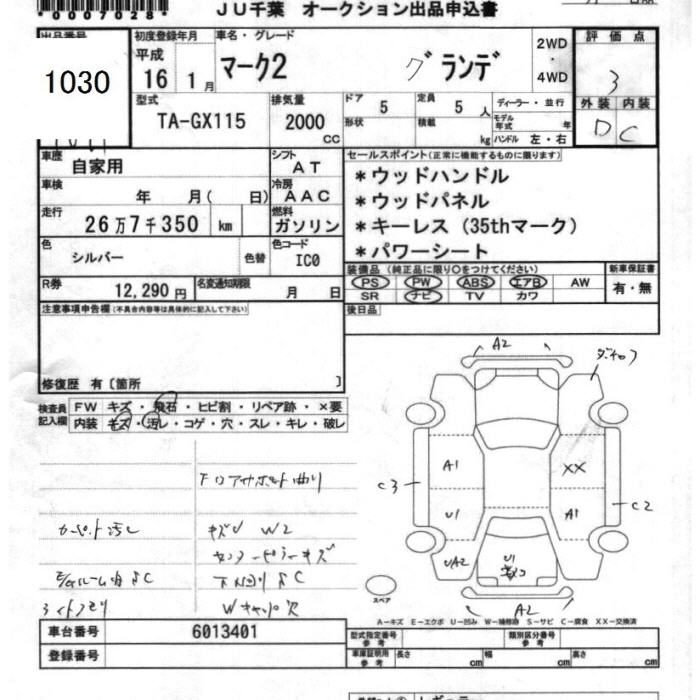 *0007028*
JU千葉 オークション出品申込書
出品番号
1030
初度登録年月
平成
16 1月
車名・グレード
マーク2 グランデ
2WD
・
4WD
評価点
3
外装 内装
D C
型式
TA-GX115
排気量
2000
cc
ドア 5
定員 5 人
形状
積載 kg
ディーラー・並行
モデル年式 年
ハンドル 左・右
車歴
自家用
シフト
AT
車検
年 月( 日)
冷房
AAC
走行
26万7千350 km
燃料
ガソリン
色
シルバー
色替
色コード
IC0
R券
12,290円
名変通知期限
月 日
セールスポイント(正常に機能するものに限ります)
*ウッドハンドル
*ウッドパネル
*キーレス (35thマーク)
*パワーシート
装備品 (純正品に限り〇をつけてください)
PS PW ABS エアB AW
SR ナビ TV カワ
新車保証書
有・無
後日品
注意事項申告欄(不具合内容等は具体的に記入して下さい)
修復歴 有〔箇所 〕
検査員記入欄
FW キズ・飛石・ヒビ割・リペア跡・×要
内装 キズ・汚レ・コゲ・穴・スレ・キレ・破レ
Fロアサポート曲り
カーペット汚レ
キズU W2
センターピラーキズ
E/gルーム サビC
下廻りサビC
ライトクモリ
Wキャップ欠
A2
C3
A1
XX
U1
A1
C2
UA2
U1
A2
スペア
A-キズ E-エクボ U-凹み W-補修跡 S-サビ C-腐食 XX-交換済
車台番号
6013401
登録番号
型式指定番号
参考
類別区分番号
参考
車庫証明用
参考
長さ cm
幅 cm
高さ cm